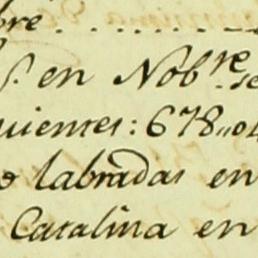 bre
s. en Nobre. se
uientes: 678,,04
labradas en
Catalina en